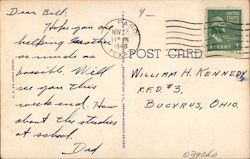 Dear Bill,
Hope you are
helping Mother
as much as
possible. Will
see you this
week end. How
about the studies
at school.
Dad
4
NOV
1940
POST CARD
1 CENT 1
WILLIAM H. KENNEDY
R.F.D. #3,
BUCYRUS, OHIO.